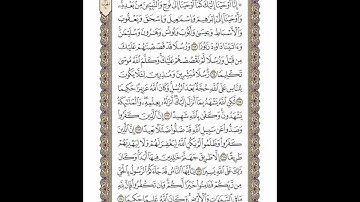 ۞ إِنَّا أَوْحَيْنَا إِلَيْكَ كَمَا أَوْحَيْنَا إِلَى نُوحٍ وَالنَّبِيِّينَ مِنْ بَعْدِهِ
وَأَوْحَيْنَا إِلَى إِبْرَاهِيمَ وَإِسْمَاعِيلَ وَإِسْحَاقَ وَيَعْقُوبَ
وَالْأَسْبَاطِ وَعِيسَى وَأَيُّوبَ وَيُونُسَ وَهَارُونَ وَسُلَيْمَانَ
وَآتَيْنَا دَاوُودَ زَبُورًا ۝ وَرُسُلًا قَدْ قَصَصْنَاهُمْ عَلَيْكَ
مِنْ قَبْلُ وَرُسُلًا لَمْ نَقْصُصْهُمْ عَلَيْكَ وَكَلَّمَ اللَّهُ مُوسَى
تَكْلِيمًا ۝ رُسُلًا مُبَشِّرِينَ وَمُنْذِرِينَ لِئَلَّا يَكُونَ
لِلنَّاسِ عَلَى اللَّهِ حُجَّةٌ بَعْدَ الرُّسُلِ وَكَانَ اللَّهُ عَزِيزًا حَكِيمًا
۝ لَكِنِ اللَّهُ يَشْهَدُ بِمَا أَنْزَلَ إِلَيْكَ أَنْزَلَهُ بِعِلْمِهِ وَالْمَلَائِكَةُ
يَشْهَدُونَ وَكَفَى بِاللَّهِ شَهِيدًا ۝ إِنَّ الَّذِينَ كَفَرُوا
وَصَدُّوا عَنْ سَبِيلِ اللَّهِ قَدْ ضَلُّوا ضَلَالًا بَعِيدًا ۝ إِنَّ الَّذِينَ
كَفَرُوا وَظَلَمُوا لَمْ يَكُنِ اللَّهُ لِيَغْفِرَ لَهُمْ وَلَا لِيَهْدِيَهُمْ
طَرِيقًا ۝ إِلَّا طَرِيقَ جَهَنَّمَ خَالِدِينَ فِيهَا أَبَدًا وَكَانَ
ذَلِكَ عَلَى اللَّهِ يَسِيرًا ۝ يَا أَيُّهَا النَّاسُ قَدْ جَاءَكُمُ الرَّسُولُ بِالْحَقِّ
مِنْ رَبِّكُمْ فَآمِنُوا خَيْرًا لَكُمْ وَإِنْ تَكْفُرُوا فَإِنَّ لِلَّهِ
مَا فِي السَّمَاوَاتِ وَالْأَرْضِ وَكَانَ اللَّهُ عَلِيمًا حَكِيمًا ۝